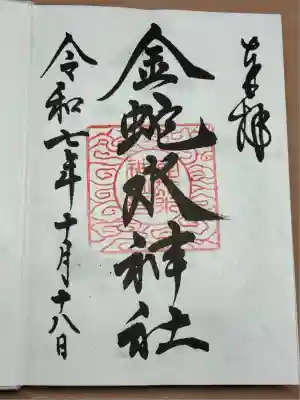 奉拝
金蛇水神社
令和七年十月十八日